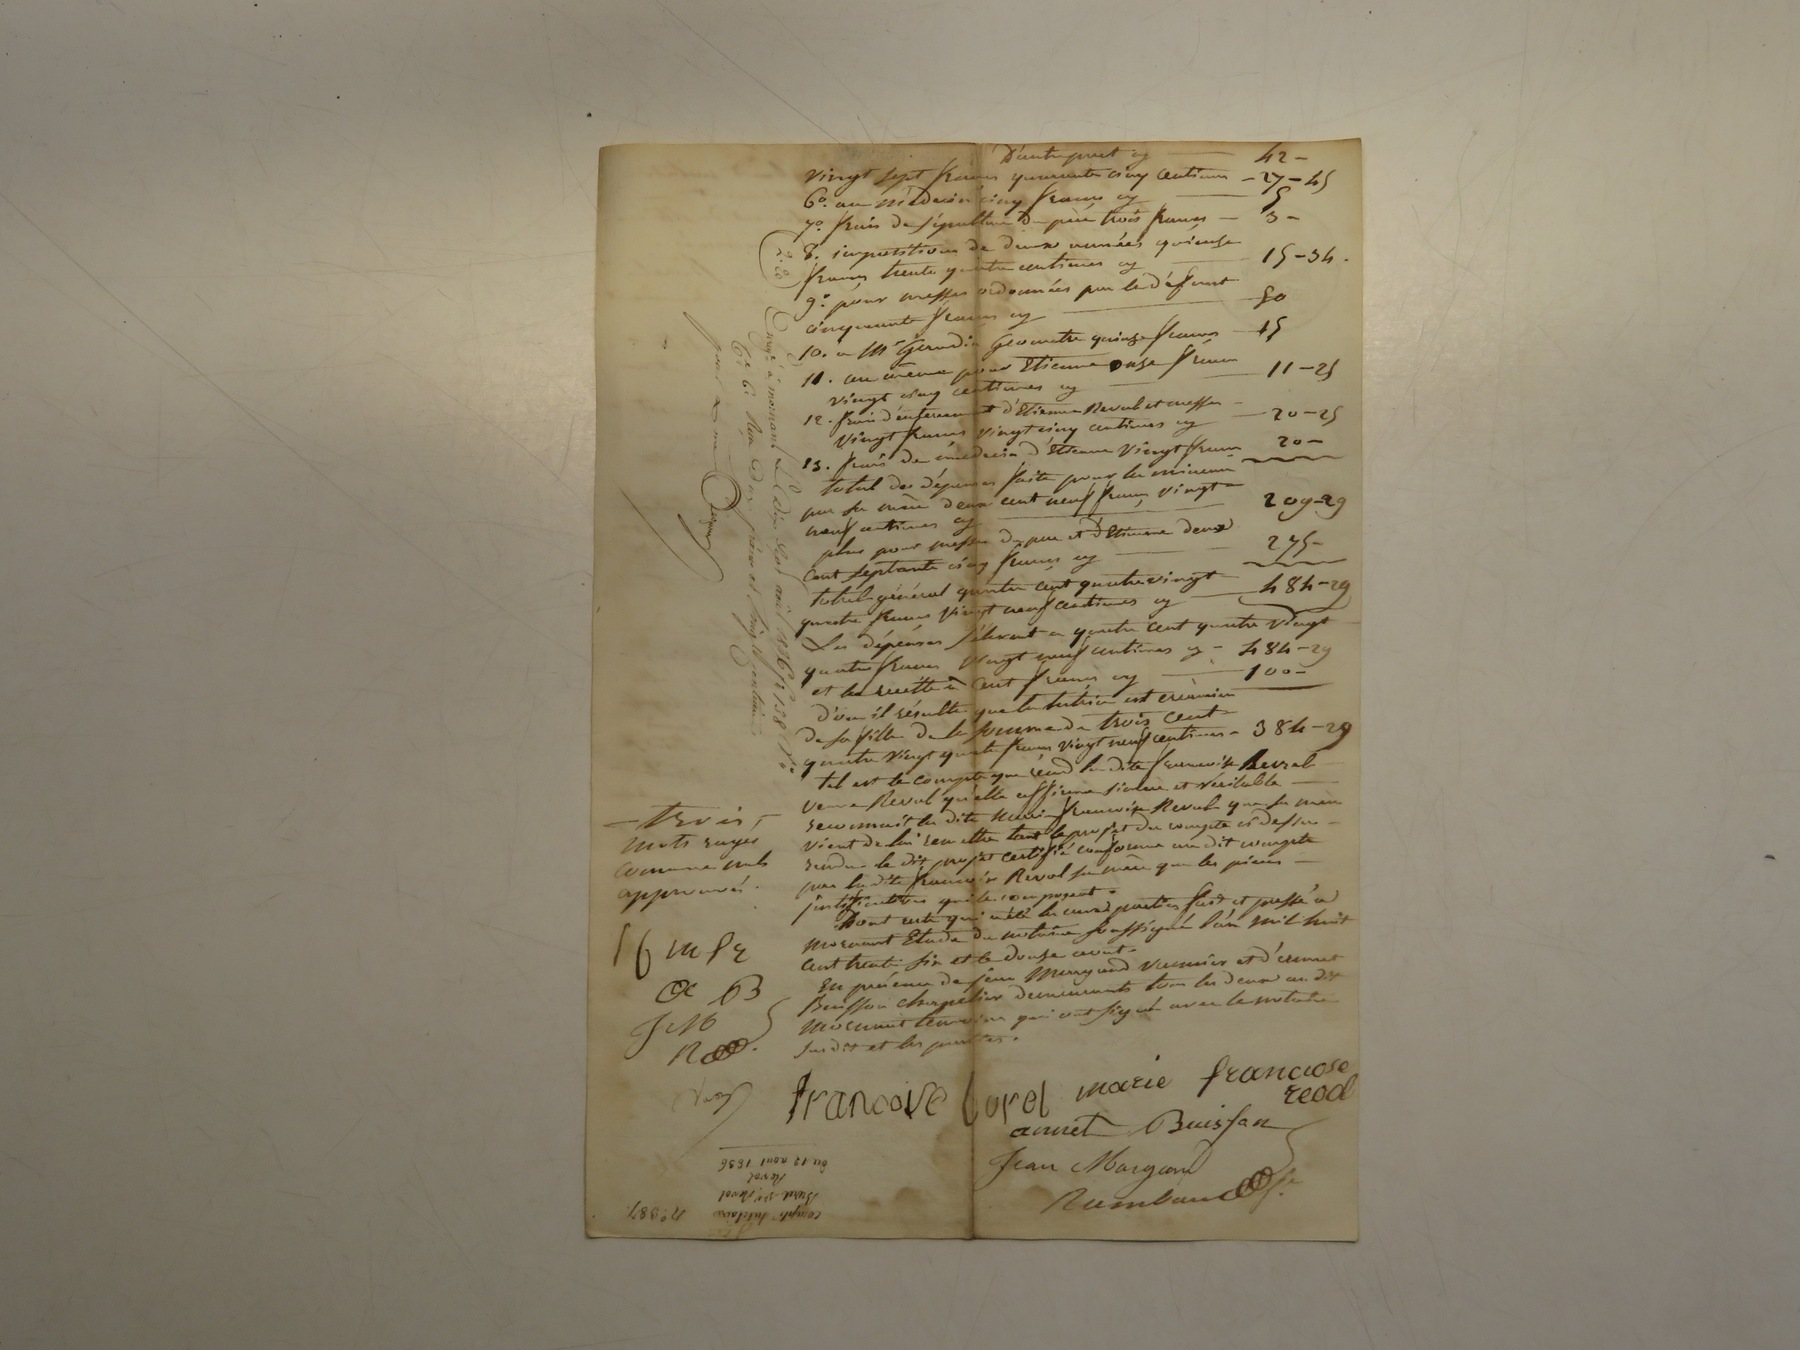 D'autre part cy 42 -
vingt sept francs quarante cinq centimes - 27 - 45
6o. au médecin cinq francs cy 5
7o. frais de sépulture du père trois francs - 3 -
8. impositions de deux années quinze
francs trente quatre centimes cy 15 - 34.
9o. pour messes ordonnées par le défunt
cinquante francs cy 50
10. a Mr Géomètre quinze francs 15
11. au même pour Etienne onze francs
vingt cinq centimes cy 11 - 25
12. frais d'enterrement d'Etienne Revol et messes
vingt francs vingt cinq centimes cy 20 - 25
13. frais de médecin d'Etienne vingt francs 20 -
total des dépenses faites pour la mineure
par sa mère deux cent neuf francs vingt
neuf centimes cy 209 - 29
plus pour messes du père et d'Etienne deux
cent septante cinq francs cy 275 -
total général quatre cent quatre vingt
quatre francs vingt neuf centimes cy 484 - 29
Les dépenses s'élevant a quatre cent quatre vingt
quatre francs vingt neuf centimes cy - 484 - 29
et la recette à cent francs cy 100 -
d'ou il résulte que la tutrice est créancière
de sa fille de la somme de trois cent
quatre vingt quatre francs vingt neuf centimes - 384 - 29
tel est le compte que rend la dite francoise
veuve Revol qu'elle affirme sincère et véritable
reconnait la dite Marie francoise Revol que sa mère
vient de lui remettre tant le projet du compte ci dessus
rendu le dit projet certifié conforme au dit compte
par la dite francoise Revol sa mère que les pièces
justificatives qui le composent.
Dont acte qui a été lu aux parties fait et passé a
mornant Etude du notaire soussigné l'an mil huit
cent trente six et le douze aout.
En présence de Jean et d'annet
Buisson charpentier demeurants tous les deux au dit
mornant temoins qui ont signé avec le notaire
susdit et les parties.
- trois -
mots rayés
comme nuls
approuvés.
JM
francoise marie francoise
revol
annet Buisson
Jean
Enregé à mornant le août 1836 fo 138
No. 387.
compte tutélaire
Revol
Du 12 août 1836